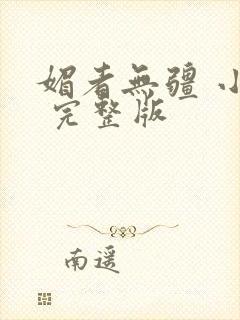 媚者無疆 小
完整版
南遥